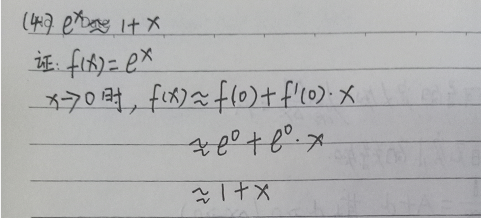 (4) eˣ ≈ 1+x
证: f(x) = eˣ
x→0时, f(x) ≈ f(0) + f'(0)·x
≈ e⁰ + e⁰·x
≈ 1+x